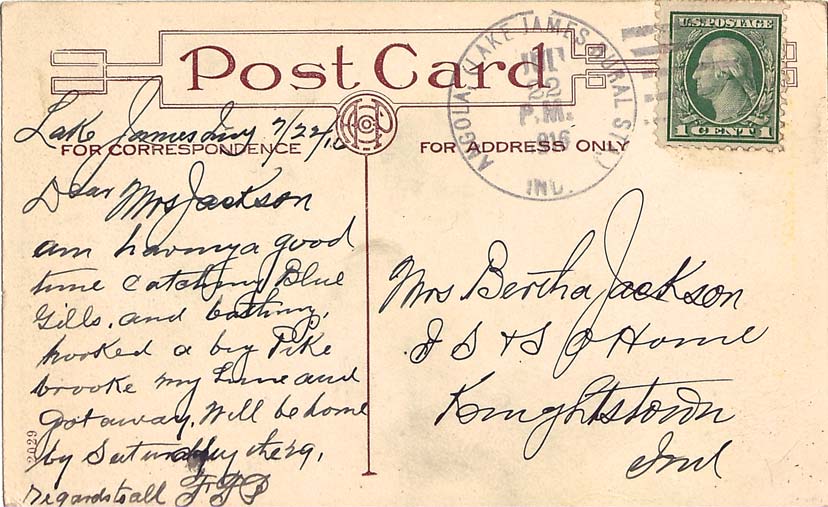 Post Card
FOR CORRESPONDENCE
FOR ADDRESS ONLY
ANGOLA, (LAKE JAMES RURAL STA.)
22
P.M.
1916
IND.
U.S. POSTAGE
1 CENT 1
Lake James Ind 7/22/16
Dear Mrs Jackson
am having a good
time catching Blue
Gills, and bathing,
hooked a big Pike
brooke my Line and
got away, Will be home
by Saturday the 29,
regards to all
Mrs Bertha Jackson
I S & S O Home
Knightstown
Ind
2029